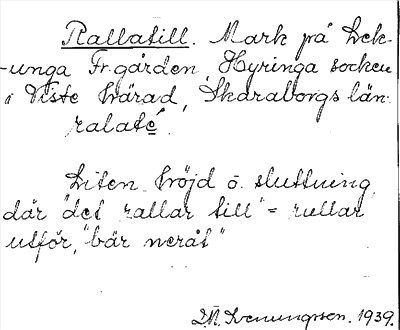 Rallatill. Mark på Svek-
-unga Fr.gården, Hyringa socken
i Viste härad, Skaraborgs län.
ralaté.
Liten höjd o. sluttning,
där "det rallar till" = rullar
utför, "bär neråt"
Svenungsson. 1939.